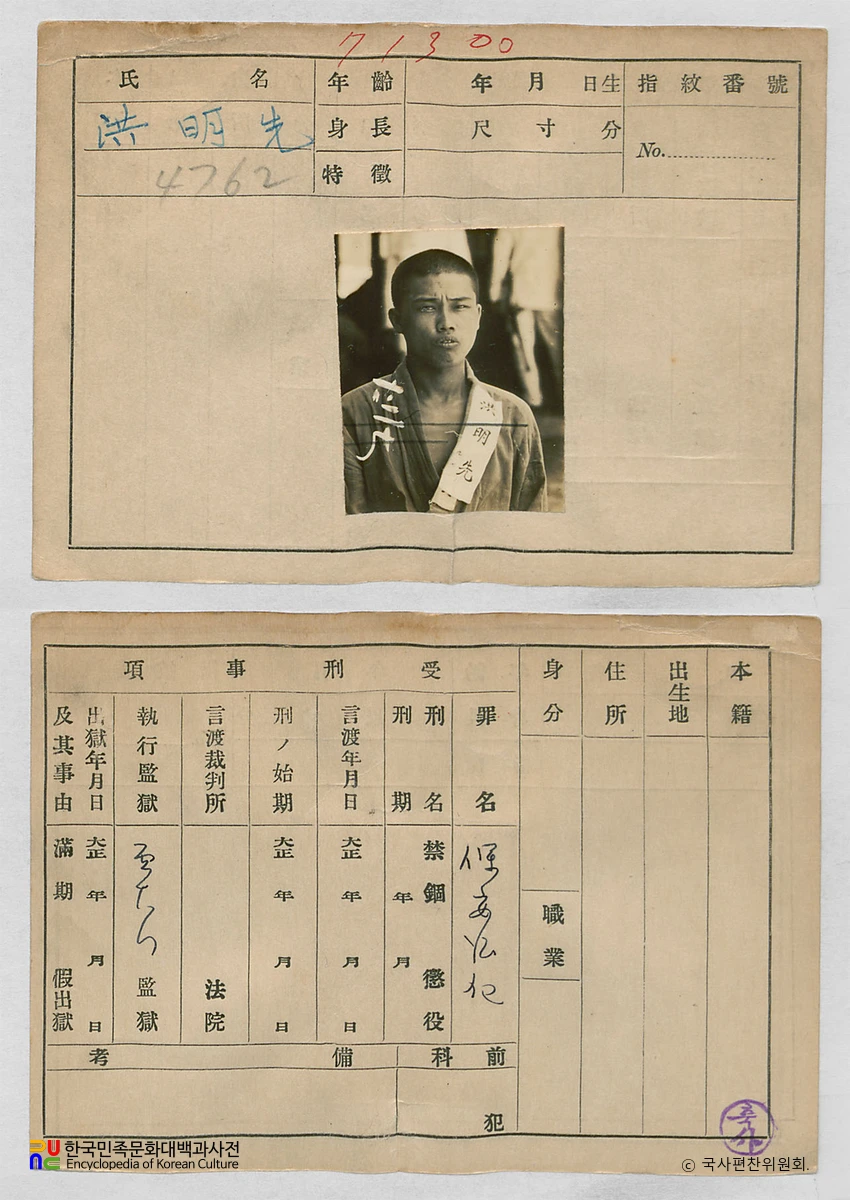 71300
氏名
年齡
年月日生
指紋番號
洪明先
身長
尺寸分
No.
4762
特徵
洪明先
本籍
出生地
住所
身分
職業
受刑事項
罪名
保安法犯
刑名
禁錮 懲役
刑期
年 月
言渡年月日
大正 年 月 日
刑ノ始期
大正 年 月 日
言渡裁判所
法院
執行監獄
監獄
出獄年月日
及其事由
大正 年 月 日
滿期 假出獄
前科
犯
備考
한국민족문화대백과사전
Encyclopedia of Korean Culture
© 국사편찬위원회.